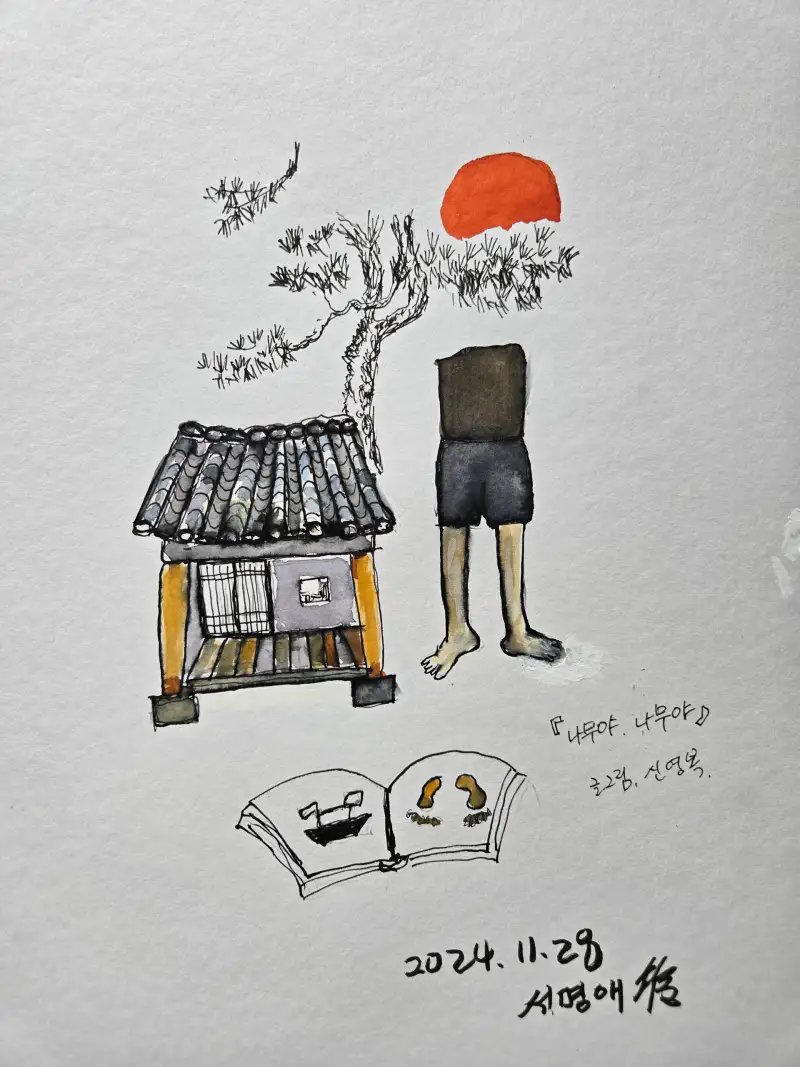 『나무야. 나무야』
글그림, 신영복.
2024.11.28
서명애